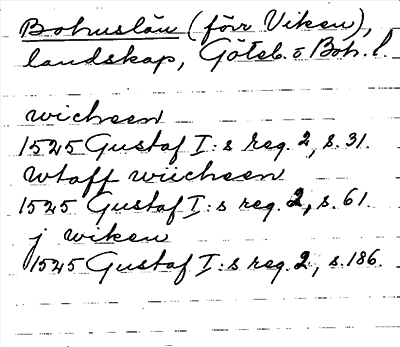 Bohuslän (förr Viken),
landskap, Göteb. o Boh. l.
wichsen
1525 Gustaf I:s reg. 2, s. 31.
wtaff wiichsen
1525 Gustaf I:s reg. 2, s. 61.
j wiken
1525 Gustaf I:s reg. 2, s. 186.